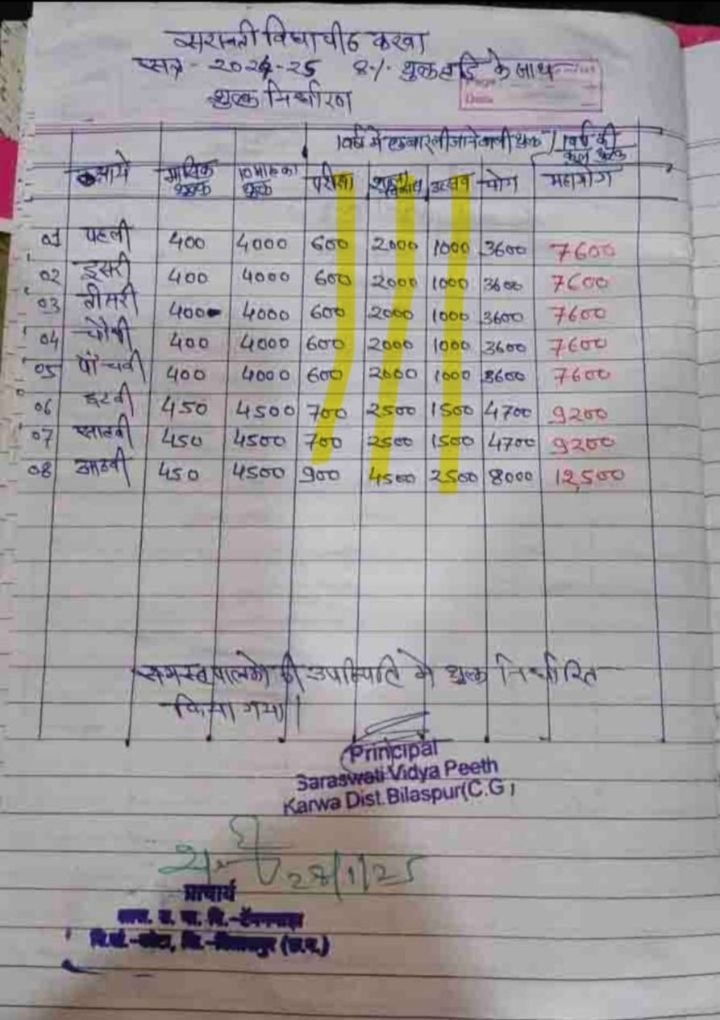 सरस्वती विद्यापीठ करवा
सत्र - 2024-25 8% शुल्क वृद्धि के साथ
शुल्क निर्धारण
1 वर्ष में एकबार ली जाने वाली शुल्क 1 वर्ष की कुल शुल्क
कक्षायें मासिक शुल्क 10 माह का शुल्क परीक्षा शाला विकास उत्सव योग महायोग
01 पहली 400 4000 600 2000 1000 3600 7600
02 दूसरी 400 4000 600 2000 1000 3600 7600
03 तीसरी 400 4000 600 2000 1000 3600 7600
04 चौथी 400 4000 600 2000 1000 3600 7600
05 पांचवी 400 4000 600 2000 1000 3600 7600
06 छटवी 450 4500 700 2500 1500 4700 9200
07 सातवी 450 4500 700 2500 1500 4700 9200
08 आठवी 450 4500 900 4500 2500 8000 12,500
समस्त पालको की उपस्थिति मे शुल्क निर्धारित
किया गया।
Principal
Saraswati Vidya Peeth
Karwa Dist. Bilaspur (C.G)
28/1/25
प्राचार्य